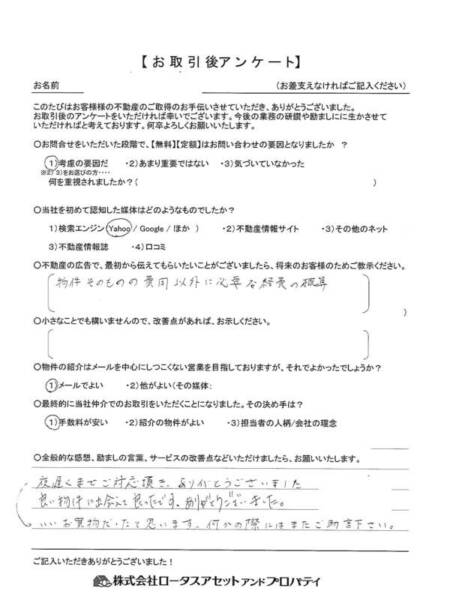 【お取引後アンケート】
お名前 (お差支えなければご記入ください)
このたびはお客様様の不動産のご取得のお手伝いさせていただき、ありがとうございました。
お取引後のアンケートをいただければ幸いでございます。今後の業務の研鑽や励ましにに生かさせて
いただければと考えております。何卒よろしくお願いいたします。
○お問合せをいただいた段階で、【無料】【定額】はお問い合わせの要因となりましたか ?
1)考慮の要因だ ・2)あまり重要ではない ・3)気づいていなかった
※2) 3)をお選びの方・・・・
何を重視されましたか?( )
○当社を初めて認知した媒体はどのようなものでしたか?
1)検索エンジン(Yahoo / Google / ほか ) ・2)不動産情報サイト ・3)その他のネット
3)不動産情報誌 ・4)口コミ
○不動産の広告で、最初から伝えてもらいたいことがございましたら、将来のお客様のためご教示ください。
物件そのものの費用以外に必要な経費の概算
○小さなことでも構いませんので、改善点があれば、お示しください。
○物件の紹介はメールを中心にしつこくない営業を目指しておりますが、それでよかったでしょうか?
1)メールでよい ・2)他がよい(その媒体:
○最終的に当社仲介でのお取引をいただくことになりました。その決め手は?
1)手数料が安い ・2)紹介の物件がよい ・3)担当者の人柄/会社の理念
○全般的な感想、励ましの言葉、サービスの改善点などいただけましたら、お願いいたします。
夜遅くまでご対応頂き、ありがとうございました
良い物件に出会えて良かったです。ありがとうございました。
いいお買物だったと思います。何かの際にはまたご助言下さい。
ご記入いただきありがとうございました!
株式会社ロータスアセットアンドプロパティ